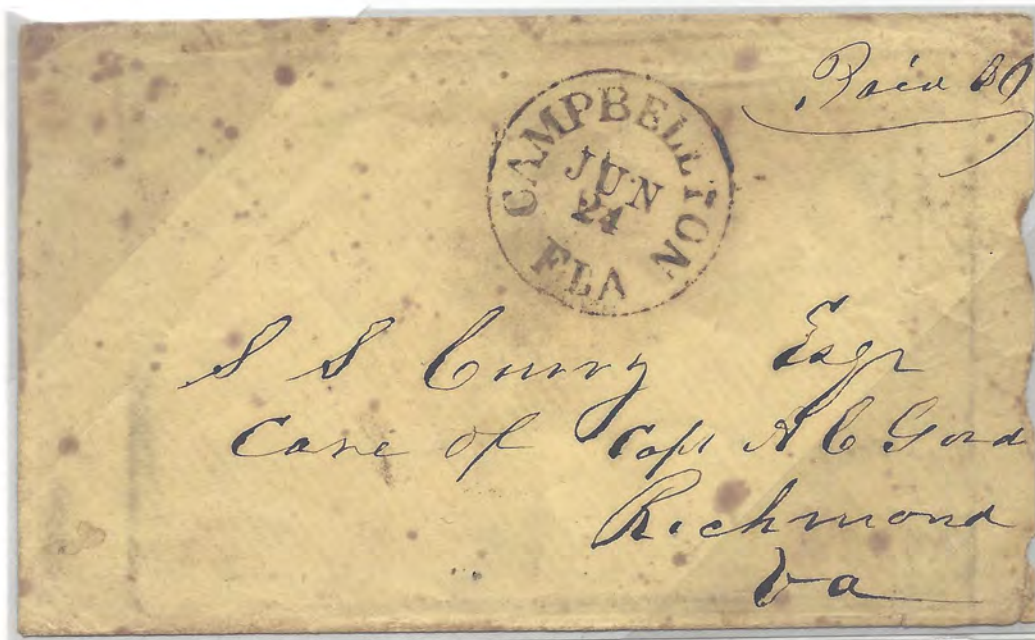 Paid
CAMPBELLTON
JUN
24
FLA
S S Curry Esqr
Care of Capt A C Gord
Richmond
Va